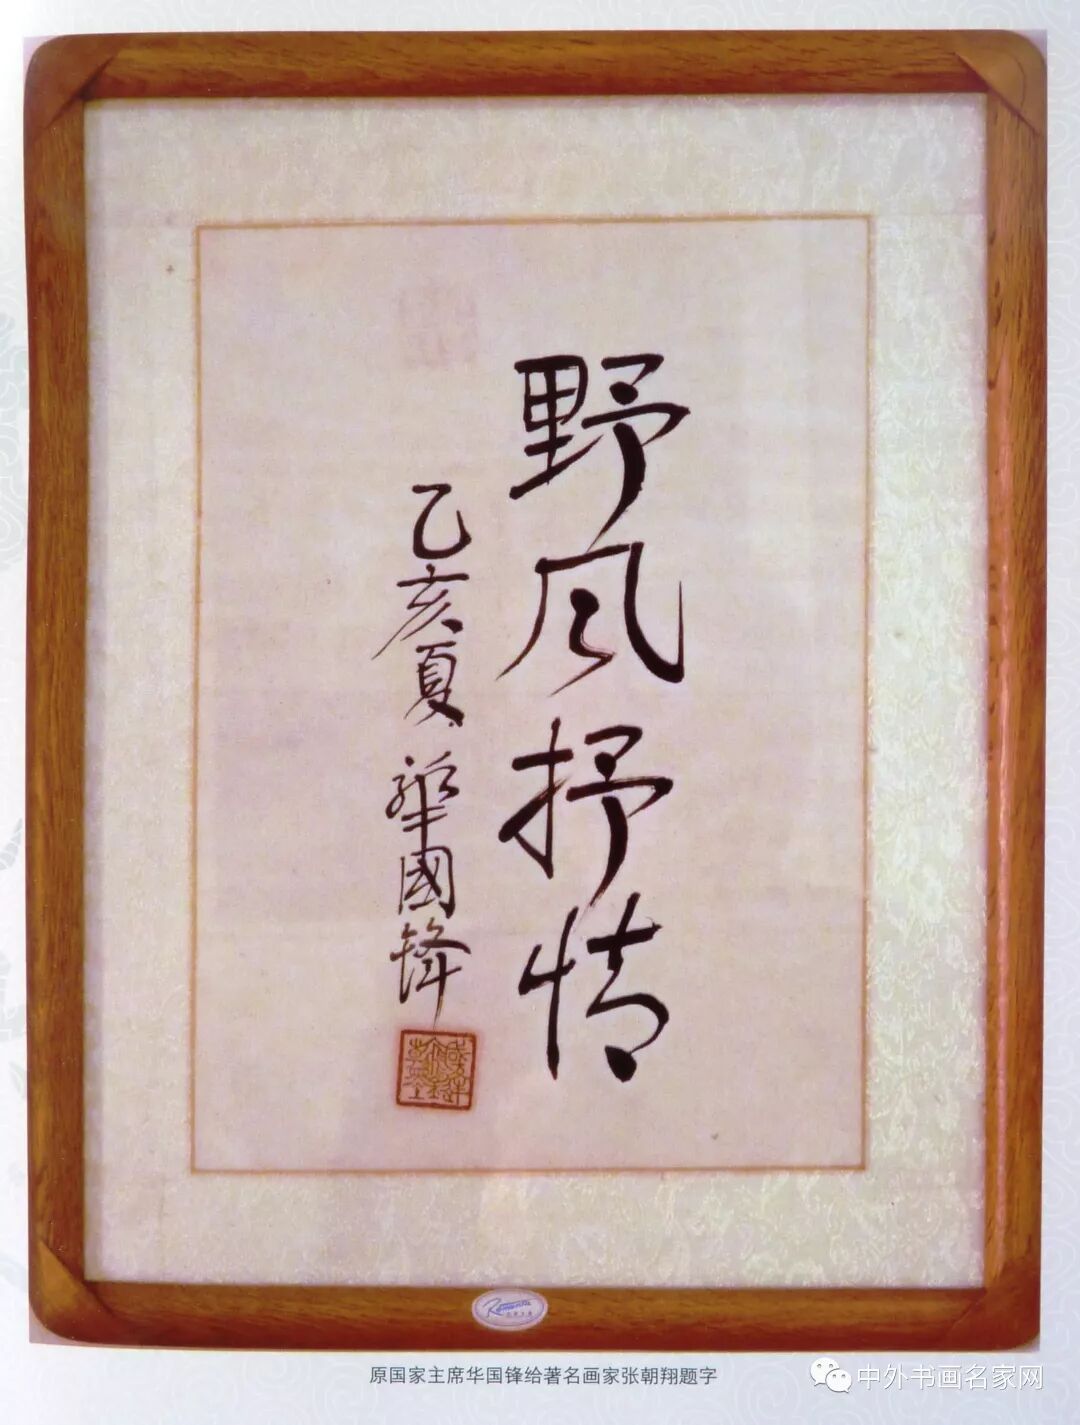 野风抒情
乙亥夏 华國锋
Romanta
原国家主席华国锋给著名画家张朝翔题字
中外书画名家网